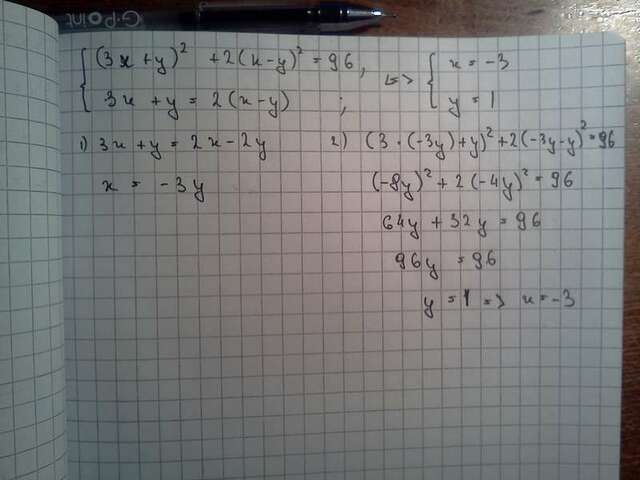 G-Point
(3x+y)² +2(x-y)²=96, <=> x=-3
3x+y=2(x-y); y=1
1) 3x+y=2x-2y 2) (3·(-3y)+y)²+2(-3y-y)²=96
x = -3y (-8y)²+2(-4y)²=96
64y+32y=96
96y=96
y=1 => x=-3